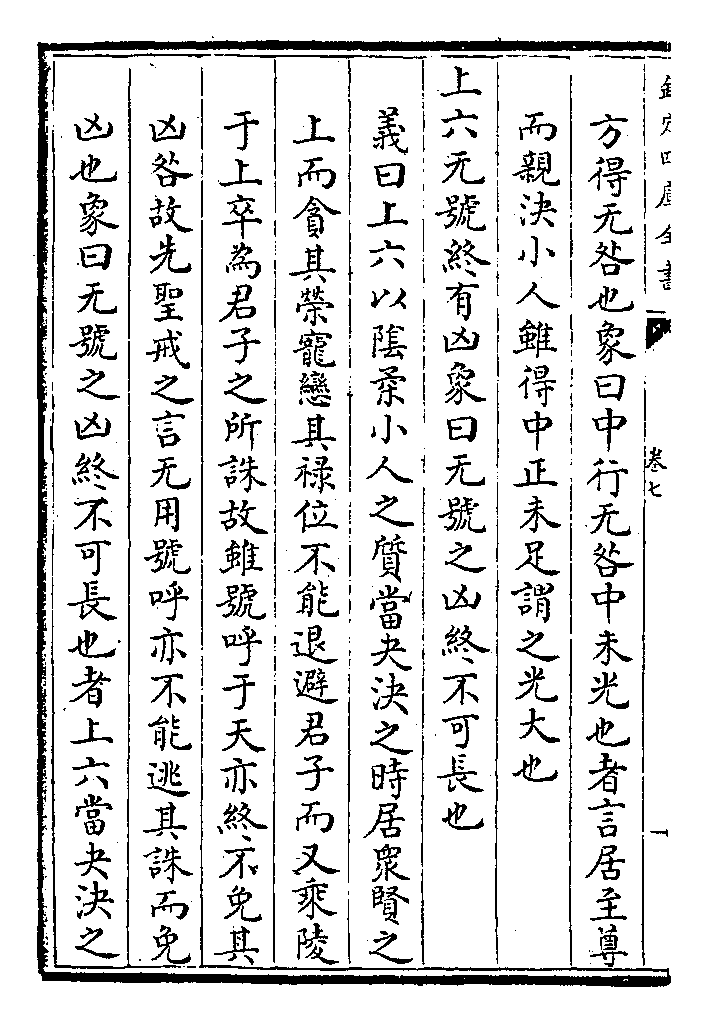 欽定四庫全書
卷七
方得无咎也象曰中行无咎中未光也者言居至尊
而親決小人雖得中正未足謂之光大也
上六无號終有凶象曰无號之凶終不可長也
義曰上六以隂柔小人之質當夬決之時居衆賢之
上而貪其榮寵戀其禄位不能退避君子而又乘陵
于上卒為君子之所誅故雖號呼于天亦終不免其
凶咎故先聖戒之言无用號呼亦不能逃其誅而免
凶也象曰无號之凶終不可長也者上六當夬決之